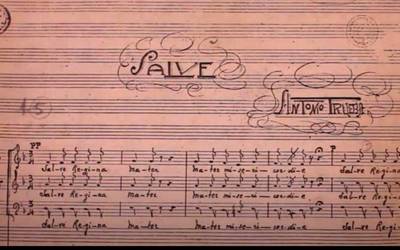 SALVE
ANTONIO TRUEBA
15
PP P
Sal-ve Re-gi-na ma-ter ma-ter mi-se-ri-cor-di-e Sal-ve Regina
Sal-ve Re-gi-na ma-ter ma-ter mi-se-ri-cor-di-e Sal-ve Regina
Sal-ve Re-gi-na ma-ter ma-ter mi-se-ri-cor-di-e Sal-ve Regina